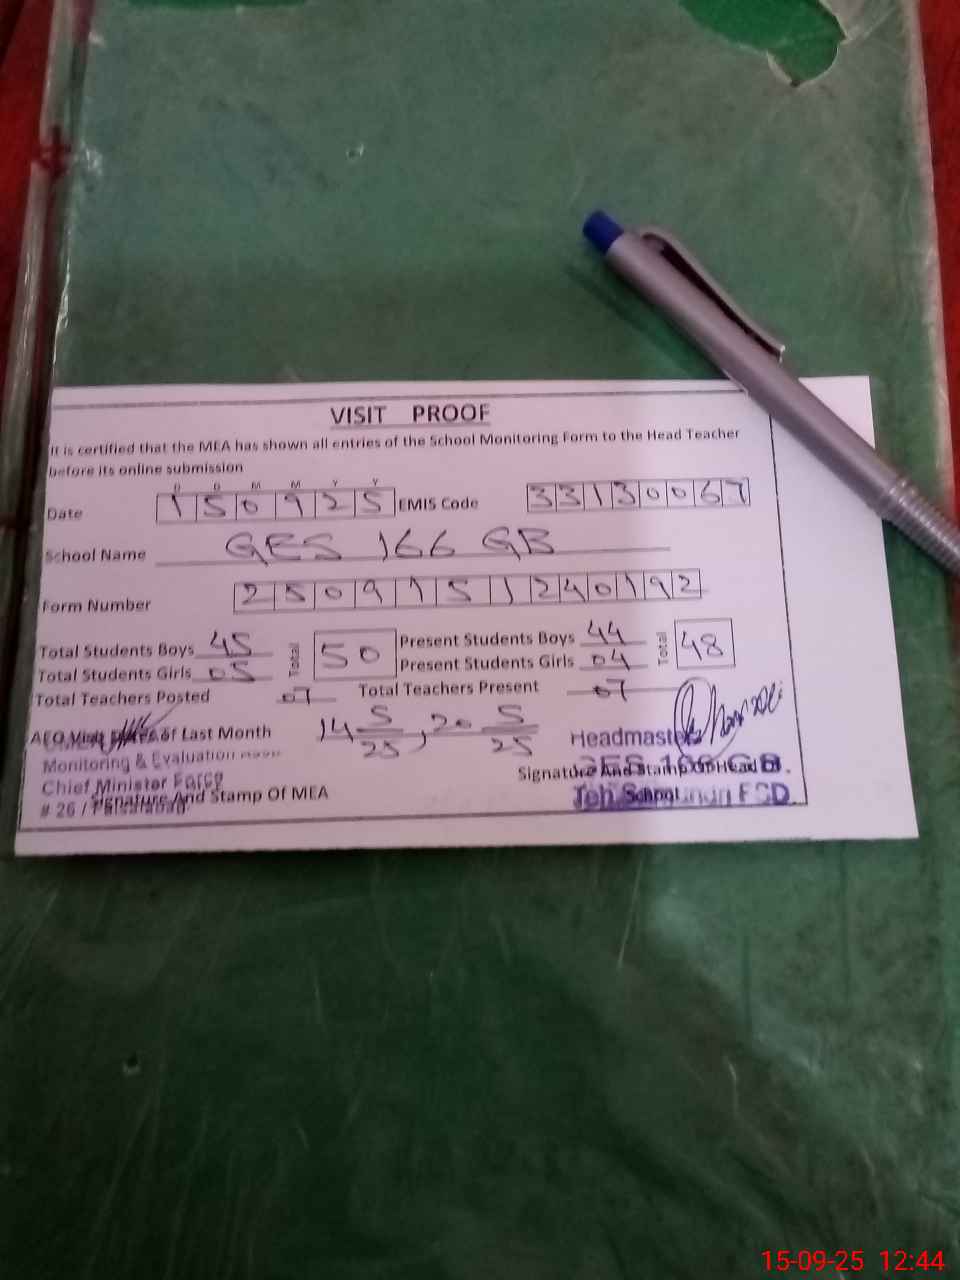 VISIT PROOF
It is certified that the MEA has shown all entries of the School Monitoring Form to the Head Teacher
before its online submission
D D M M Y Y
Date 150925 EMIS Code 33130067
School Name GES 166 GB
Form Number 2509151240192
Total Students Boys 45 Total 50 Present Students Boys 44 Total 48
Total Students Girls 05 Present Students Girls 04
Total Teachers Posted 07 Total Teachers Present 07
AEO Visit of Last Month 14 5/25, 20 5/25
Monitoring & Evaluation
Chief Minister Force
# 26 / Faisalabad
Signature And Stamp Of MEA
Headmaster
GES 166 G.B.
Signature And Stamp Of Head
School
Teh. FSD
15-09-25 12:44